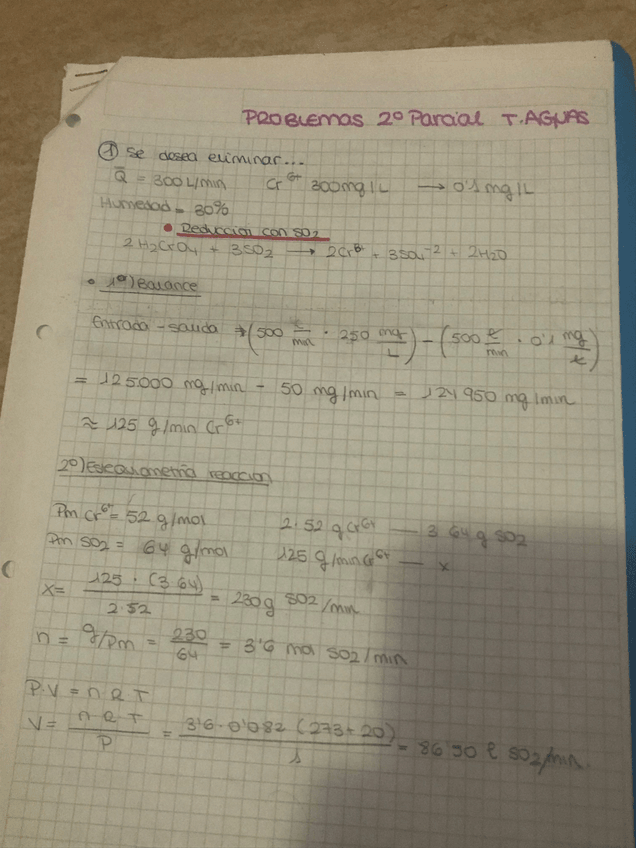 PROBLEMAS 2º Parcial T. AGUAS
① Se desea eliminar...
Q̄ = 300 L/min Cr⁶⁺ 300 mg/L → 0'1 mg/L
Humedad = 30%
• Reducción con SO2
2H2CrO4 + 3SO2 → 2Cr + 3SO4⁻² + 2H2O
• 1º) Balance
Entrada - salida → (500 ℓ/min · 250 mg/L) - (500 ℓ/min · 0'1 mg/ℓ)
= 125000 mg/min - 50 mg/min = 124950 mg/min
≈ 125 g/min Cr⁶⁺
2º) Estequiometría reacción
Pm Cr⁶⁺ = 52 g/mol 2·52 g Cr⁶⁺ — 3·64 g SO2
Pm SO2 = 64 g/mol 125 g/min Cr⁶⁺ — x
x = 125 · (3·64) / 2·52 = 230 g SO2/min
n = g/Pm = 230/64 = 3'6 mol SO2/min
P·V = n·R·T
V = n·R·T / P = 3'6·0'082 (273+20) / 1 = 86'90 ℓ SO2/min.